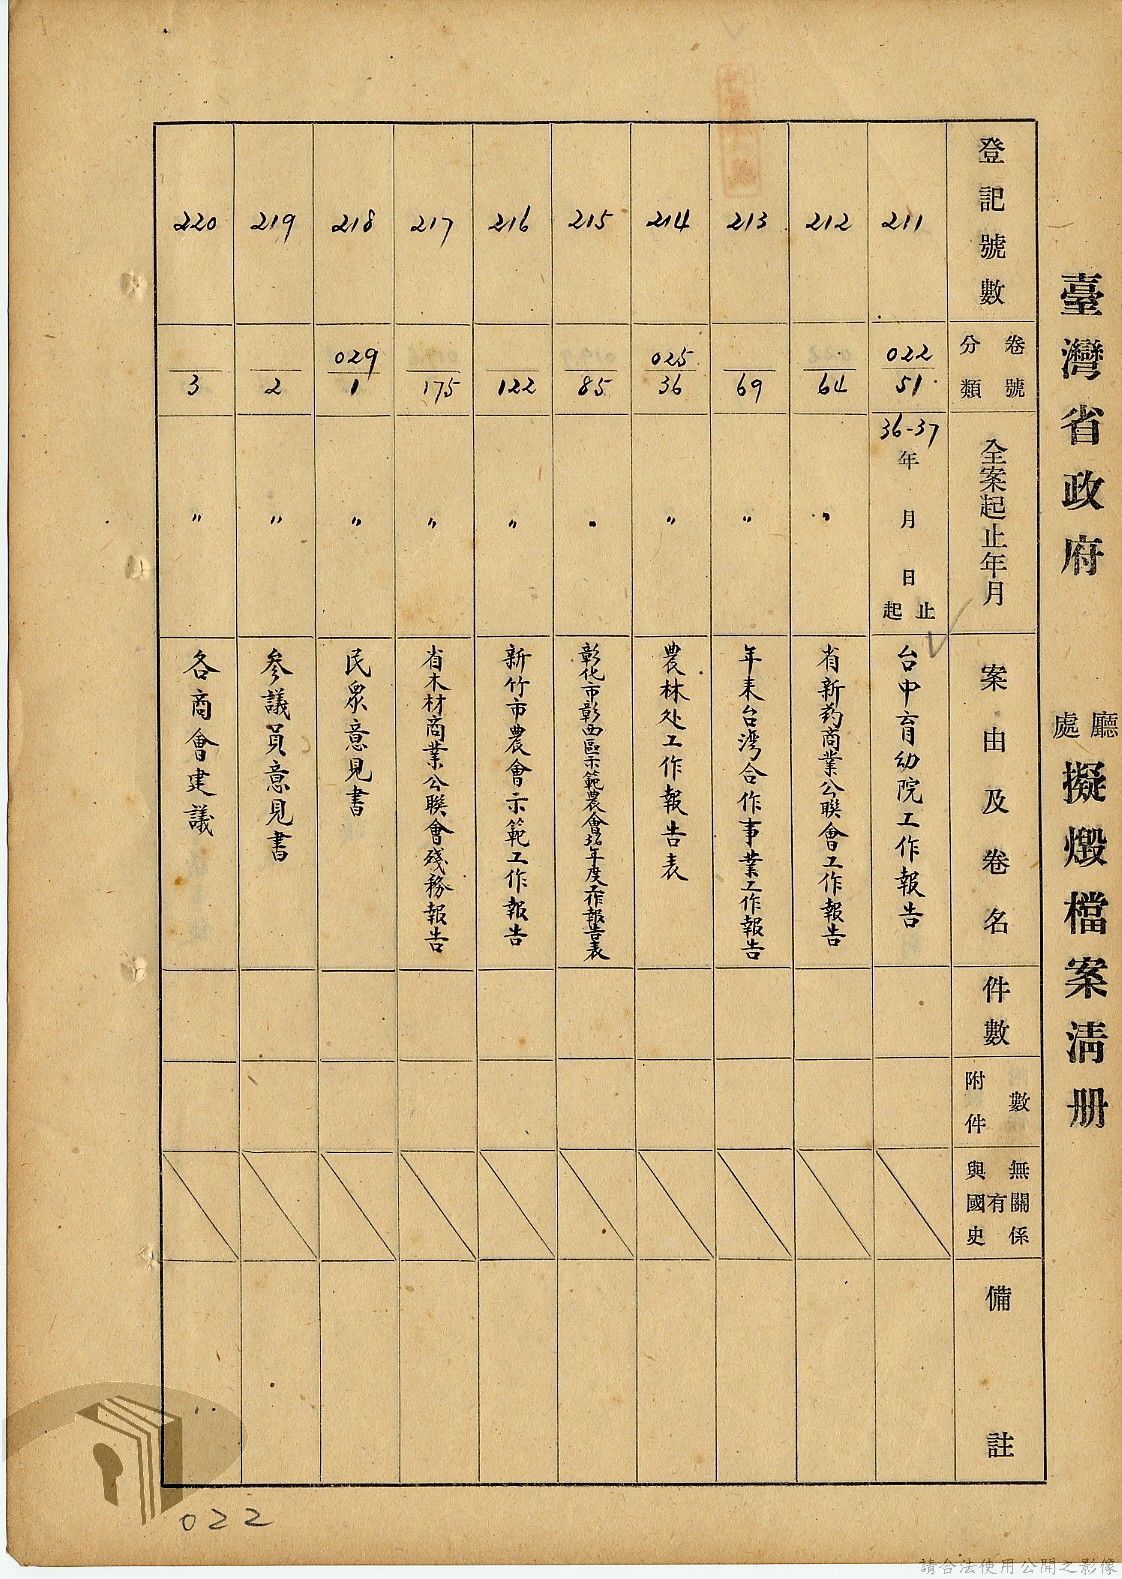 臺灣省政府 廳處 擬燬檔案清册
登記號數
卷號
分類
全案起止年月
案由及卷名
件數
附件
數
無關係
有
與國史
備註
211
022
51
36-37
年 月 日
止
起
台中育幼院工作報告
212
64
〃
省新药商業公联會工作報告
213
69
〃
年来台湾合作事業工作報告
214
025
36
〃
農林处工作報告表
215
85
〃
彰化市彰西區示範農會36年度工作報告表
216
122
〃
新竹市農會示範工作報告
217
175
〃
省木材商業公联會殘務報告
218
029
1
〃
民眾意見書
219
2
〃
參議員意見書
220
3
〃
各商會建議
022
請合法使用公開之影像